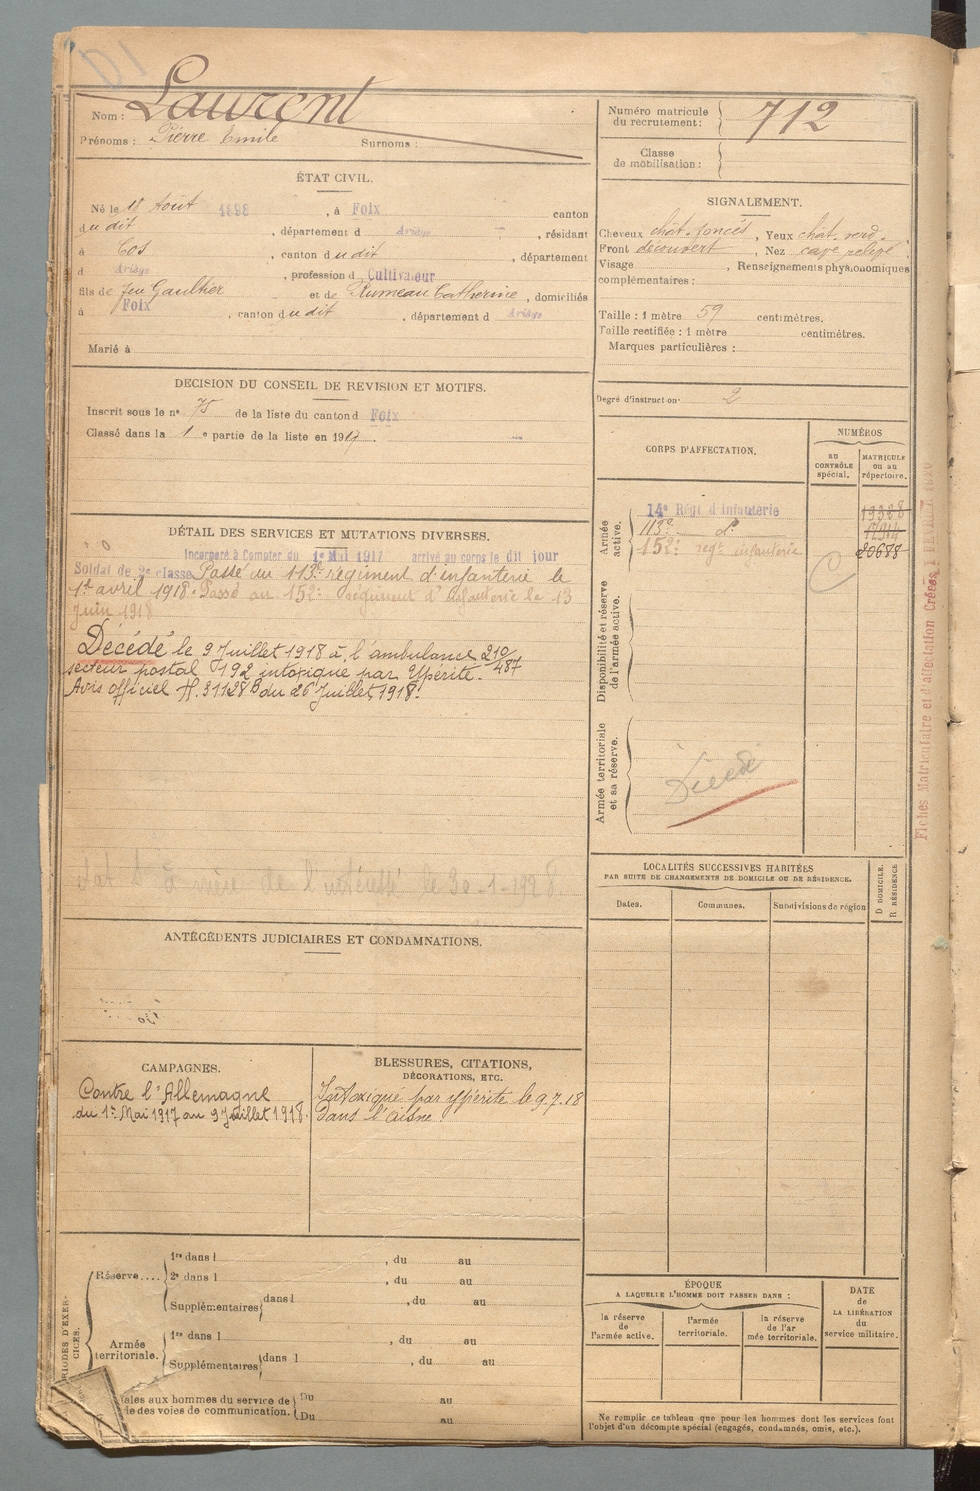 Nom : Laurent
Prénoms : Pierre Emile Surnoms :
Numéro matricule du recrutement : 712
Classe de mobilisation :
ÉTAT CIVIL.
Né le 18 Août 1898, à Foix canton
dudit, département d Ariège, résidant
à Cos, canton dudit, département
d Ariège, profession d Cultivateur
fils de feu Gaultier et de Rumeau Catherine, domiciliés
à Foix, canton dudit, département d Ariège
Marié à
SIGNALEMENT.
Cheveux chât. foncés, Yeux chât. verd.
Front découvert, Nez cave relevé
Visage , Renseignements physionomiques
complémentaires :
Taille : 1 mètre 59 centimètres.
Taille rectifiée : 1 mètre centimètres.
Marques particulières :
Degré d'instruction 2
DECISION DU CONSEIL DE REVISION ET MOTIFS.
Inscrit sous le n° 75 de la liste du canton d Foix
Classé dans la 1 e partie de la liste en 1917.
CORPS D'AFFECTATION.
NUMÉROS
AU CONTRÔLE spécial.
MATRICULE ou au répertoire.
Armée active.
14e Régt d'Infanterie
113e do
152e regt infanterie 20688
Disponibilité et réserve de l'armée active.
Armée territoriale et sa réserve.
Décédé
Fiches Matriculaire et d'affectation Créées
DÉTAIL DES SERVICES ET MUTATIONS DIVERSES.
Incorporé à Compter du 1er Mai 1917 arrivé au corps le dit jour
Soldat de 2e classe Passé au 113e régiment d'infanterie le
1er avril 1918. Passé au 152e régiment d'infanterie le 13
Juin 1918
Décédé le 9 Juillet 1918 à l'ambulance 210/487
secteur postal 192 intoxiqué par Ypérite.
Avis officiel H. 31128 B du 26 Juillet 1918.
le 30-1-1928
ANTÉCÉDENTS JUDICIAIRES ET CONDAMNATIONS.
LOCALITÉS SUCCESSIVES HABITÉES
PAR SUITE DE CHANGEMENTS DE DOMICILE OU DE RÉSIDENCE.
Dates. Communes. Subdivisions de région
D DOMICILE.
R RÉSIDENCE
CAMPAGNES.
Contre l'Allemagne
du 1er Mai 1917 au 9 Juillet 1918.
BLESSURES, CITATIONS,
DÉCORATIONS, ETC.
Intoxiqué par ypérite le 9.7.18
dans l'Aisne
RIODES D'EXERCICES.
Réserve....
1re dans l , du au
2e dans l , du au
Supplémentaires dans l , du au
Armée territoriale.
1re dans l , du au
Supplémentaires dans l , du au
ales aux hommes du service de Du au
de des voies de communication. Du au
ÉPOQUE
A LAQUELLE L'HOMME DOIT PASSER DANS :
la réserve de l'armée active.
l'armée territoriale.
la réserve de l'ar mée territoriale.
DATE de LA LIBÉRATION du service militaire.
Ne remplir ce tableau que pour les hommes dont les services font
l'objet d'un décompte spécial (engagés, condamnés, omis, etc.).